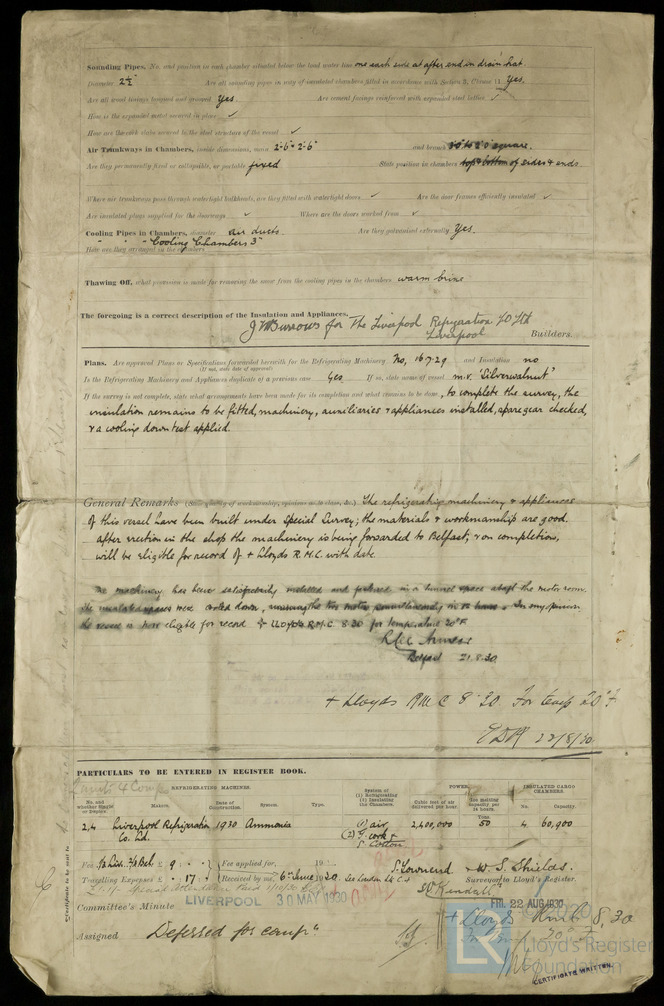 Sounding Pipes, No. and position in each chamber situated below the load water line one each side at after end in drain hat.
Diameter 2½" Are all sounding pipes in way of insulated chambers fitted in accordance with Section 3, Clause 11 Yes.
Are all wood linings tongued and grooved Yes. Are cement facings reinforced with expanded steel lattice ✓
How is the expanded metal secured in place ✓
How are the cork slabs secured to the steel structure of the vessel ✓
Air Trunkways in Chambers, inside dimensions, main 2'-6" × 2'-6" and branch square.
Are they permanently fixed or collapsible, or portable fixed State position in chambers top & bottom of sides & ends.
Where air trunkways pass through watertight bulkheads, are they fitted with watertight doors ✓ Are the door frames efficiently insulated ✓
Are insulated plugs supplied for the doorways ✓ Where are the doors worked from ✓
Cooling Pipes in Chambers, diameter air ducts Are they galvanised externally Yes.
" " " Cooling Chambers 3"
How are they arranged in the chambers
Thawing Off, what provision is made for removing the snow from the cooling pipes in the chambers warm brine
The foregoing is a correct description of the Insulation and Appliances.
J W Burrows for The Liverpool Refrigeration Co Ltd
Liverpool Builders.
Plans. Are approved Plans or Specifications forwarded herewith for the Refrigerating Machinery No, 16-7-29 and Insulation no
(If not, state date of approval)
Is the Refrigerating Machinery and Appliances duplicate of a previous case Yes If so, state name of vessel m.v. "Silverwalnut"
If the survey is not complete, state what arrangements have been made for its completion and what remains to be done, to complete the survey, the
insulation remains to be fitted, machinery, auxiliaries & appliances installed, spare gear checked,
& a cooling down test applied.
General Remarks (State quality of workmanship, opinions as to class, &c.) The refrigerating machinery & appliances
of this vessel have been built under Special Survey; the materials & workmanship are good.
after erection in the shop the machinery is being forwarded to Belfast; & on completion,
will be eligible for record of + Lloyds R.M.C. with date
The machinery has been satisfactorily installed and fastened in a tunnel space abaft the motor room.
The insulated spaces were cooled down, running the two motors simultaneously in hours & In my opinion
the vessel is now eligible for record + LLOYD'S R.M.C 8.30 for temperature 20°F
Belfast 21.8.30.
+ Lloyds RMC 8-30 For temp 20°F.
22/8/30
PARTICULARS TO BE ENTERED IN REGISTER BOOK.
REFRIGERATING MACHINES. POWER. INSULATED CARGO CHAMBERS.
No. and whether Single or Duplex. Makers. Date of Construction. System. Type. System of (1) Refrigerating (2) Insulating the Chambers. Cubic feet of air delivered per hour Ice melting capacity per 24 hours. No. Capacity.
Tons
2,4 Liverpool Refrigeration Co. Ltd. 1930 Ammonia (1) air (2) G. cork & S. Cotton 2,400,000 50 4 60,900
Fee £ 9 : Fee applied for, 19
Travelling Expenses £ : 17 : Received by me, 6th June 1930 See London
S. Townend & W. S. Shields.
Surveyor to Lloyd's Register.
LIVERPOOL 30 MAY 1930
FRI. 22 AUG 1930
Committee's Minute
+ Lloyds RMC 8.30
20° F.
Assigned Deferred for compn
CERTIFICATE WRITTEN.
LR
Lloyd's Register
Foundation